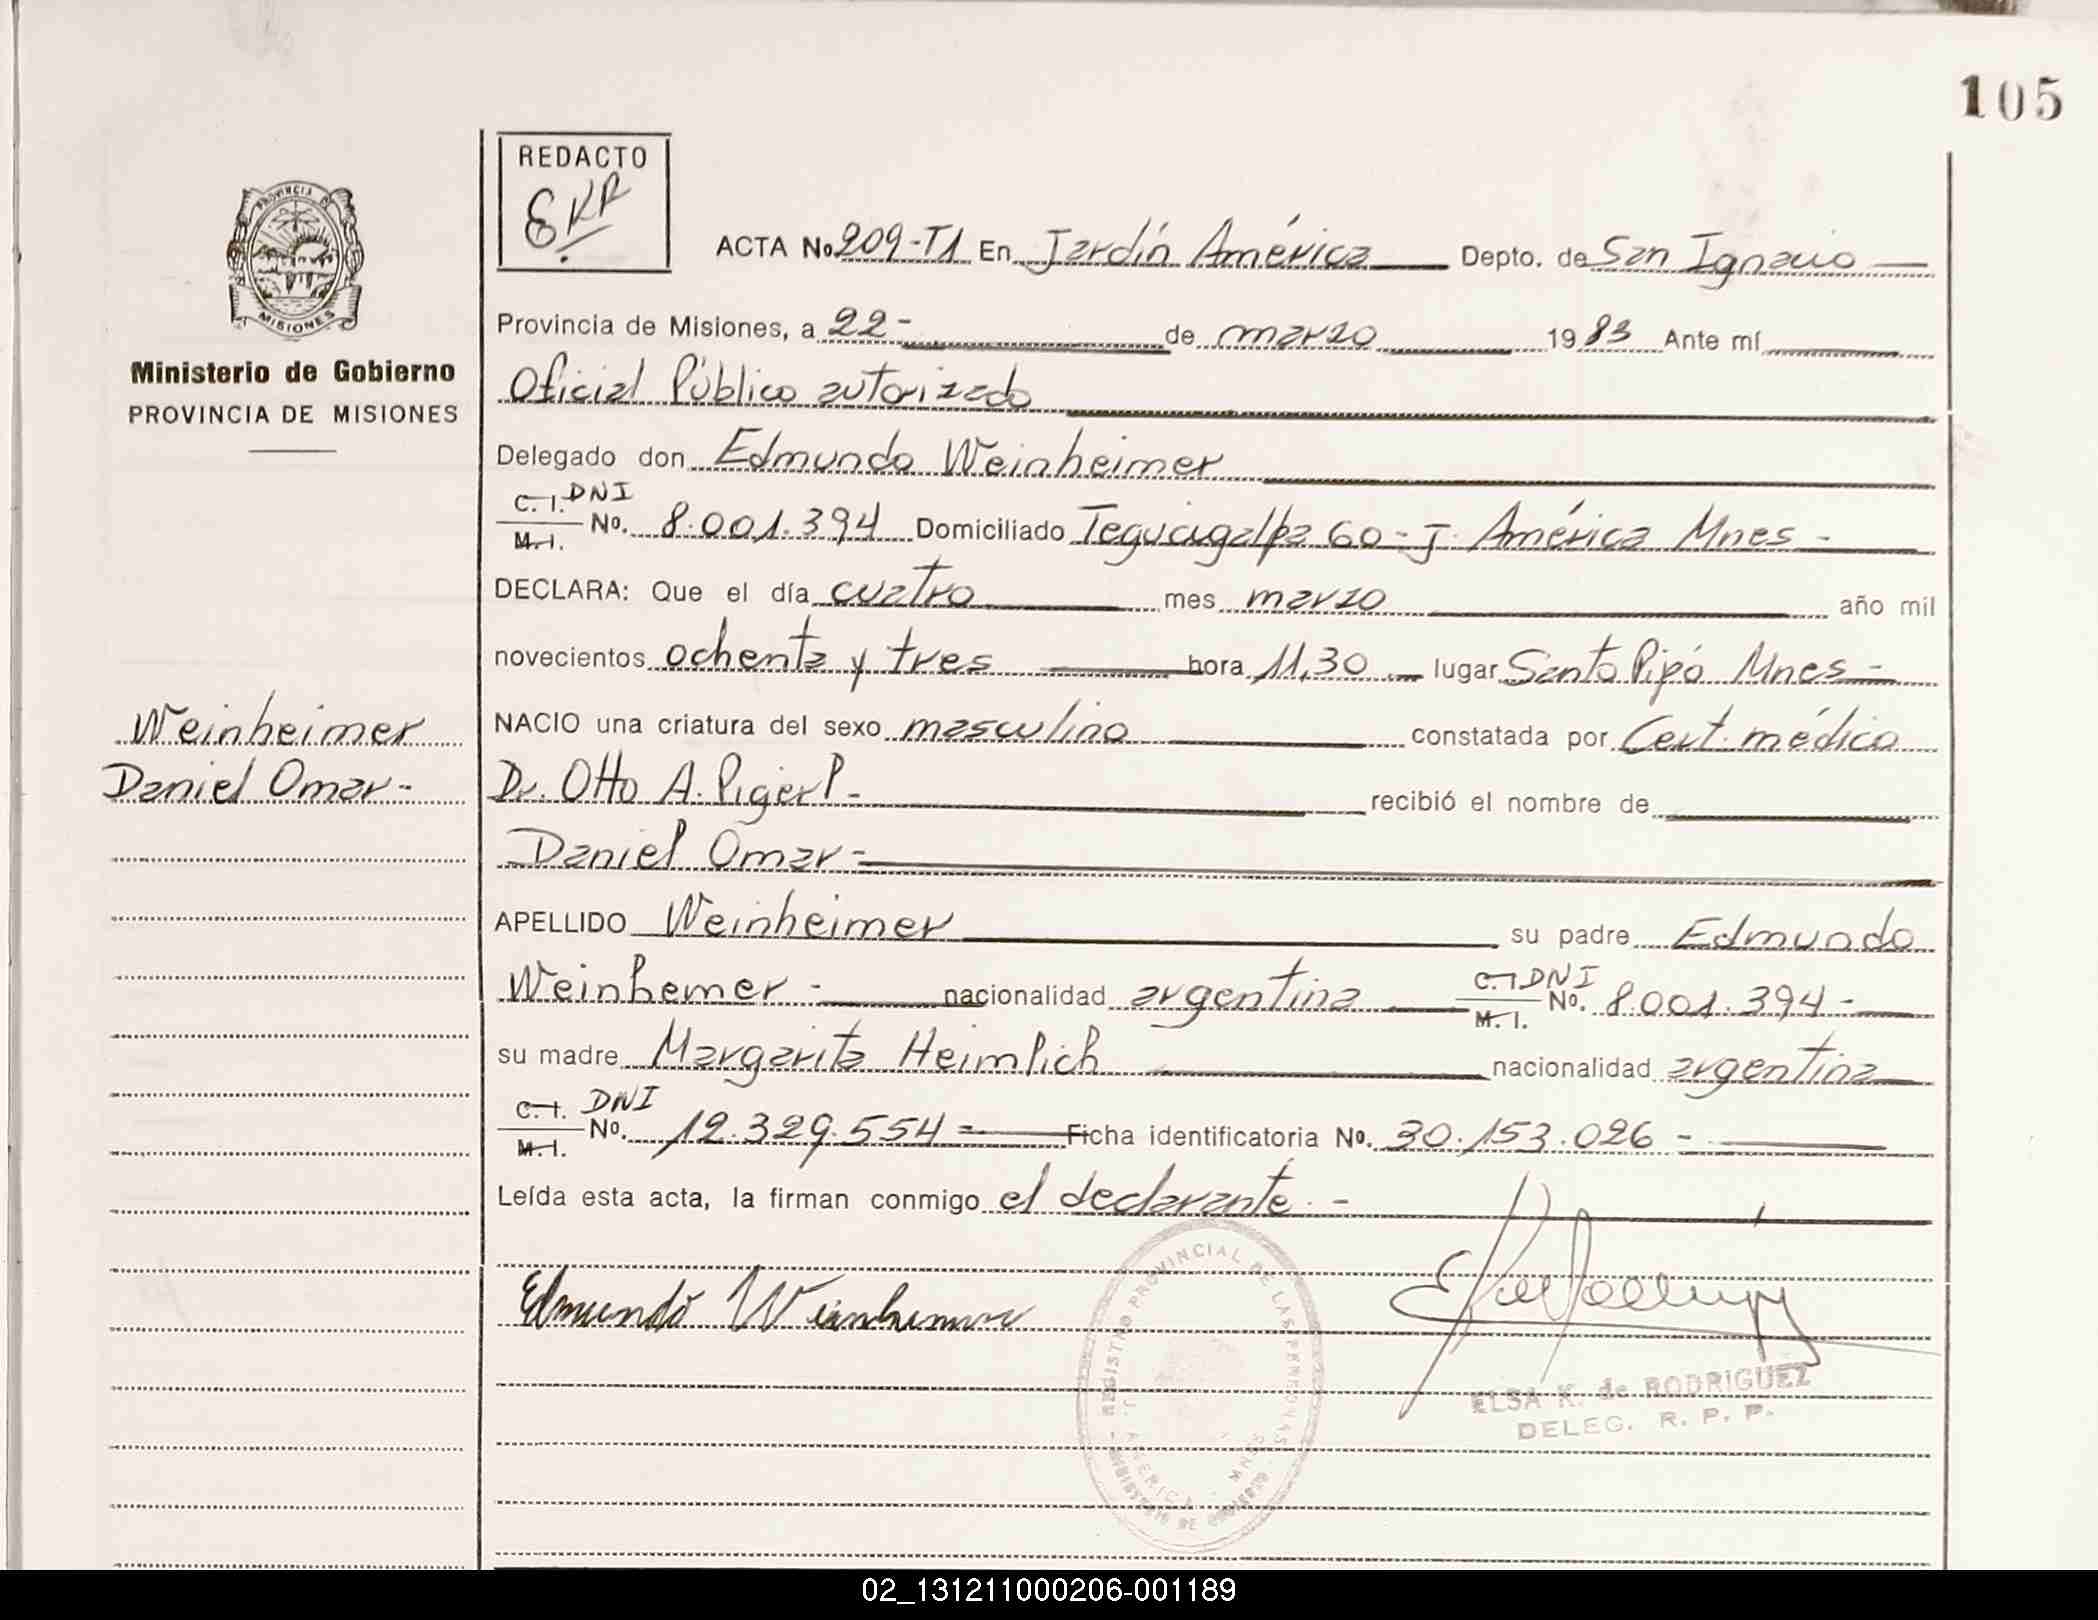 105
REDACTO
EKR
ACTA No. 209-T1 En Jardín América Depto. de San Ignacio
PROVINCIA DE MISIONES
Provincia de Misiones, a 22- de marzo 1983 Ante mí
Ministerio de Gobierno
PROVINCIA DE MISIONES
Oficial Público autorizado
Delegado don Edmundo Weinheimer
C. I. DNI
M. I. No. 8.001.394 Domiciliado Tegucigalpa 60-J. América Mnes-
DECLARA: Que el día cuatro mes marzo año mil
novecientos ochenta y tres hora 11,30 lugar Santo Pipó Mnes-
Weinheimer
NACIO una criatura del sexo masculino constatada por Cert. médico
Daniel Omar-
Dr. Otto A. Pigerl- recibió el nombre de
Daniel Omar-
APELLIDO Weinheimer su padre Edmundo
Weinhemer- nacionalidad argentina C. I. DNI M. I. No. 8.001.394-
su madre Margarita Heimlich nacionalidad argentina
C. I. DNI
M. I. No. 12.329.554- Ficha identificatoria No. 30.153.026-
Leída esta acta, la firman conmigo el declarante.-
Edmundo Weinheimer
REGISTRO PROVINCIAL DE LAS PERSONAS
J. AMERICA - MNES
MINISTERIO DE GOBIERNO
ELSA K. de RODRIGUEZ
DELEG. R. P. P.
02_131211000206-001189